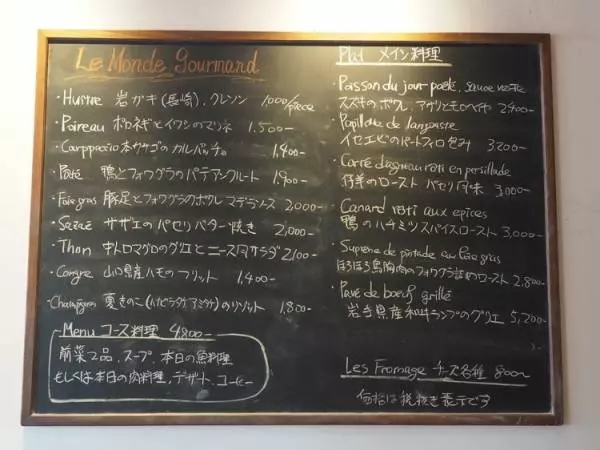 Le Monde Gourmand
・Huitre 岩ガキ(長崎)、クレソン 1,000/piece
・Poireau ポロネギとイワシのマリネ 1,500-
・Carppacio 本カサゴのカルパッチョ 1,400-
・Pâté 鴨とフォワグラのパテアンクルート 1,900-
・Foie gras 豚足とフォワグラのポワレ マデラソース 2,000-
・Sazaé サザエのパセリバター焼き 2,000-
・Thon 中トロマグロのグリエとニース風サラダ 2,100-
・Congre 山口県産ハモのフリット 1,400-
・Champignon 夏きのこ(ハナビラダケ アミガサ)のリゾット 1,800-
Menu コース料理 4,800-
前菜2品、スープ、本日の魚料理
もしくは本日の肉料理、デザート、コーヒー
Plat メイン料理
・Poisson du jour poêlé, sauce verte
スズキのポワレ アサリとモロヘイヤ 2,400-
・Papillote de langouste
イセエビのパートフィロ包み 3,200-
・Carré d'agneau roti en persillade
仔羊のロースト パセリ風味 3,000-
・Canard roti aux epices
鴨のハチミツスパイスロースト 3,000-
・Supreme de pintade au foie gras
ほろほろ鳥胸肉のフォワグラ詰めロースト 2,800-
・Pavé de boeuf grillé
岩手県産和牛ランプのグリエ 5,200-
Les Fromage チーズ各種 800~
価格は税抜き表示です